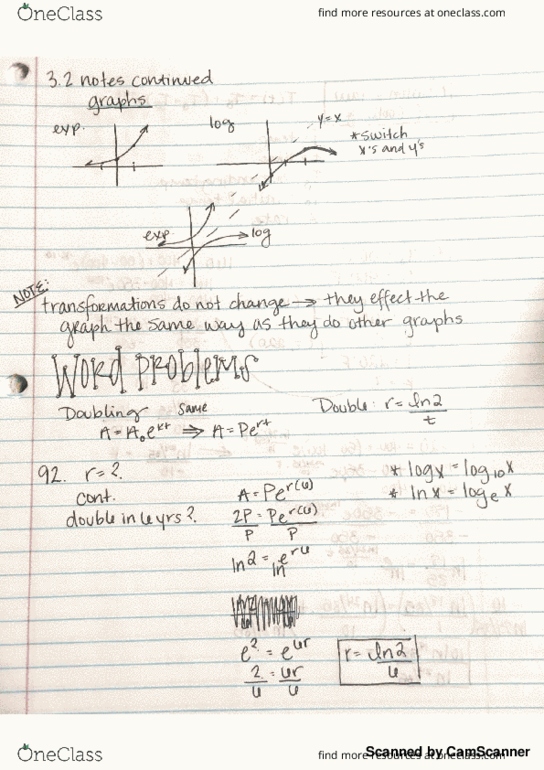 OneClass
find more resources at oneclass.com
3.2 notes continued
graphs
exp.
log
y=x
*switch
x's and y's
exp
log
NOTE:
transformations do not change → they effect the
graph the same way as they do other graphs
Word problems
Doubling same
A=A₀eᵏᵗ ⇒ A=Peʳᵗ
Double: r = ln2/t
92. r=?
cont.
double in 6 yrs?
* logx = log₁₀x
* lnx = logₑx
A=Pe^r(6)
2P/P = Pe^r(6)/P
ln2 = e^r6
ln
e² = e^6r
2/6 = 6r/6
r = ln2/6
OneClass
find more resources at oneclass.com
Scanned by CamScanner